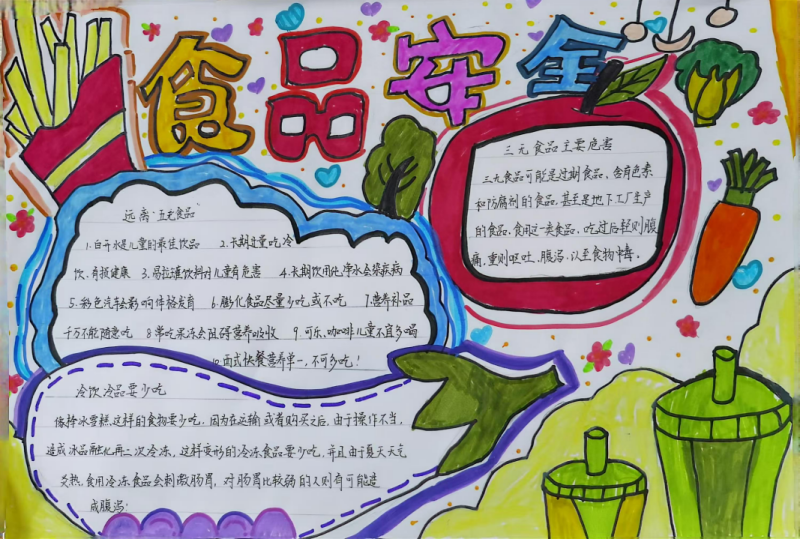 食品安全
远离"五毛食品"
1.白开水是儿童的最佳饮品 2.长期过量吃冷
饮、有损健康 3.易拉罐饮料对儿童有危害 4.长期饮用纯净水会染疾病
5.彩色汽车会影响体格发育 6.膨化食品尽量少吃或不吃 7.营养补品
千万不能随意吃 8常吃果冻会阻碍营养吸收 9.可乐、咖啡儿童不宜多喝
10.西式快餐营养单一,不可多吃!
三无食品主要危害
三无食品可能是过期食品,含有色素
和防腐剂的食品,甚至是地下工厂生产
的食品。食用这一类食品,吃过后轻则腹
痛,重则呕吐、腹泻、以至食物中毒。
冷饮冷品要少吃
像棒冰雪糕这样的食物要少吃,因为在运输或者购买之后,由于操作不当,
造成冰品融化再二次冷冻,这样变形的冷冻食品要少吃,并且由于夏天天气
炎热,食用冷冻食品会刺激肠胃,对肠胃比较弱的人则有可能造
成腹泻!